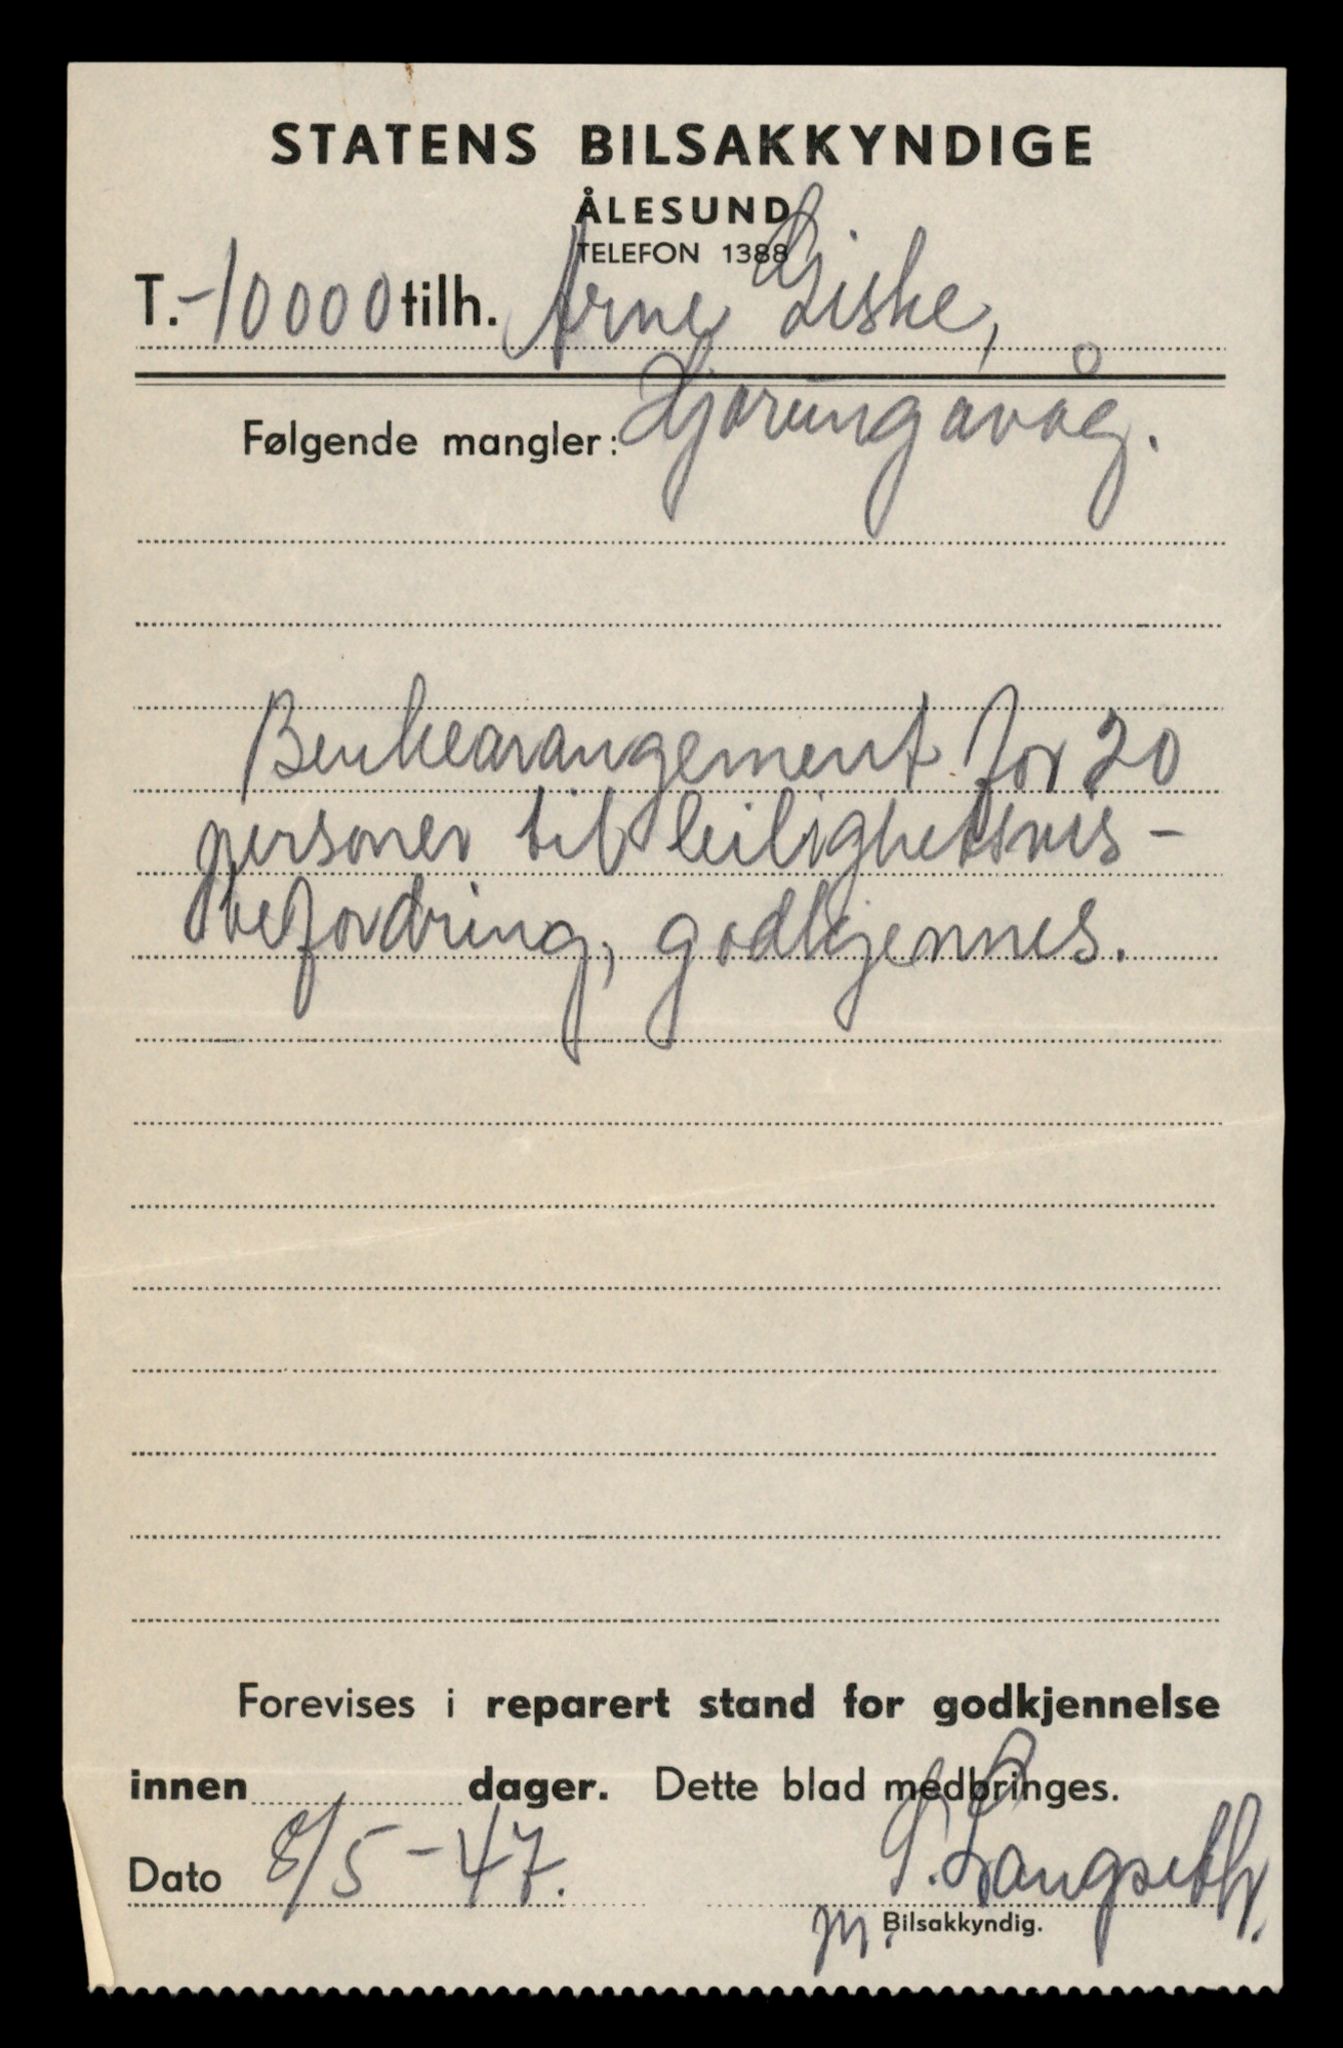 STATENS BILSAKKYNDIGE
ÅLESUND
TELEFON 1388
T.-10000 tilh. Arne Giske,
Hjørungavåg.
Følgende mangler:
Benkearangement for 20
personer til leilighetsvis -
befordring, godkjennes.
Forevises i reparert stand for godkjennelse
innen dager. Dette blad medbringes.
Dato 8/5-47. S. Langseth.
m. Bilsakkyndig.